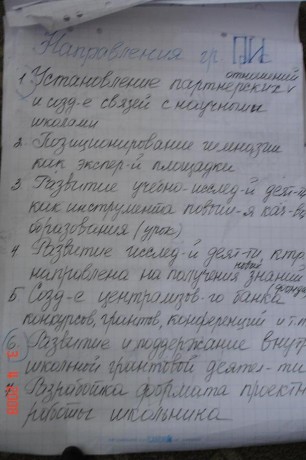 Направления гр. ПИ
1. Установление партнерских отношений
и созд-е связей с научными
школами
2. Позиционирование гимназии
как экспер-й площадки
3. Развитие учебно-исслед-й деят-и
как инструмента повыш-я кач-ва
образования (урок)
4 Развитие исслед-й деят-ти, ктр.
направлена на получения новых знаний
5 Созд-е централизов-го банка
конкурсов, грантов, конференций и т п
6 Развитие и поддержание внутр
школьной грантовой деятел-ти
7 Разработка формата проектн
работы школьника